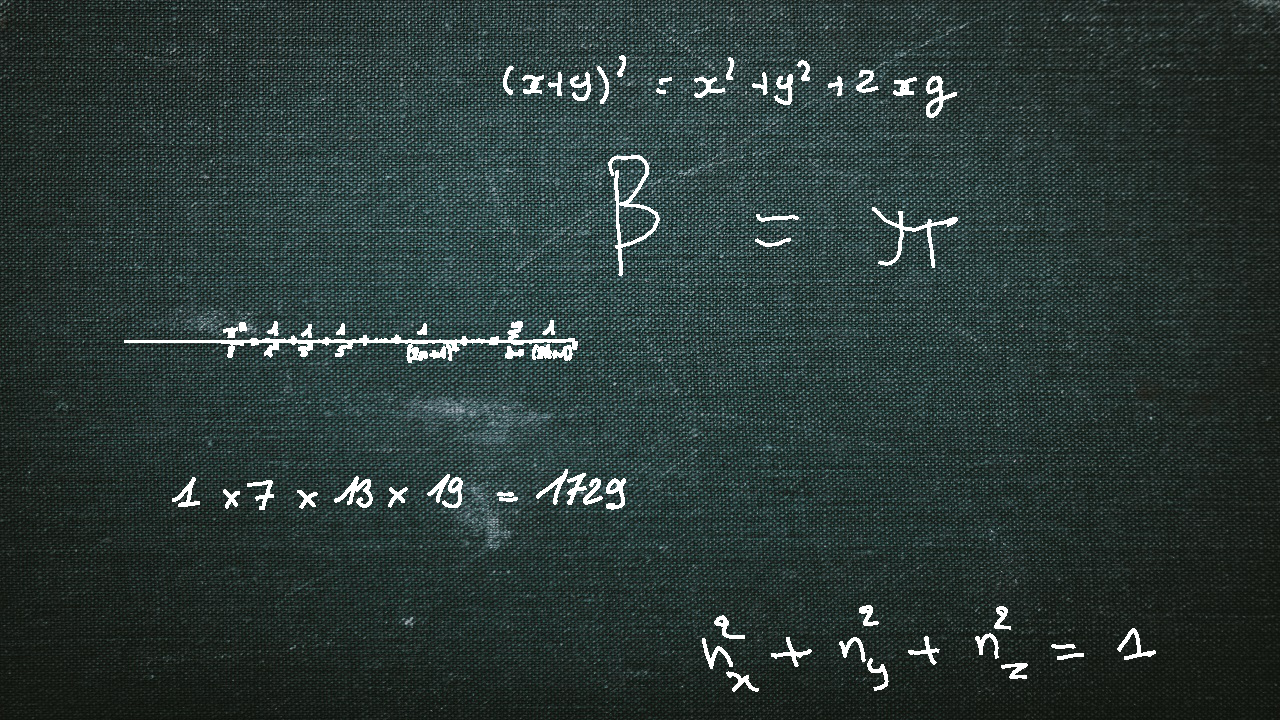 (x+y)² = x² + y² + 2xy
β = π
π²/8 = 1/1² + 1/3² + 1/5² + ... + 1/(2n+1)² + ... = 1/(2k+1)²
1 × 7 × 13 × 19 = 1729
n_x² + n_y² + n_z² = 1